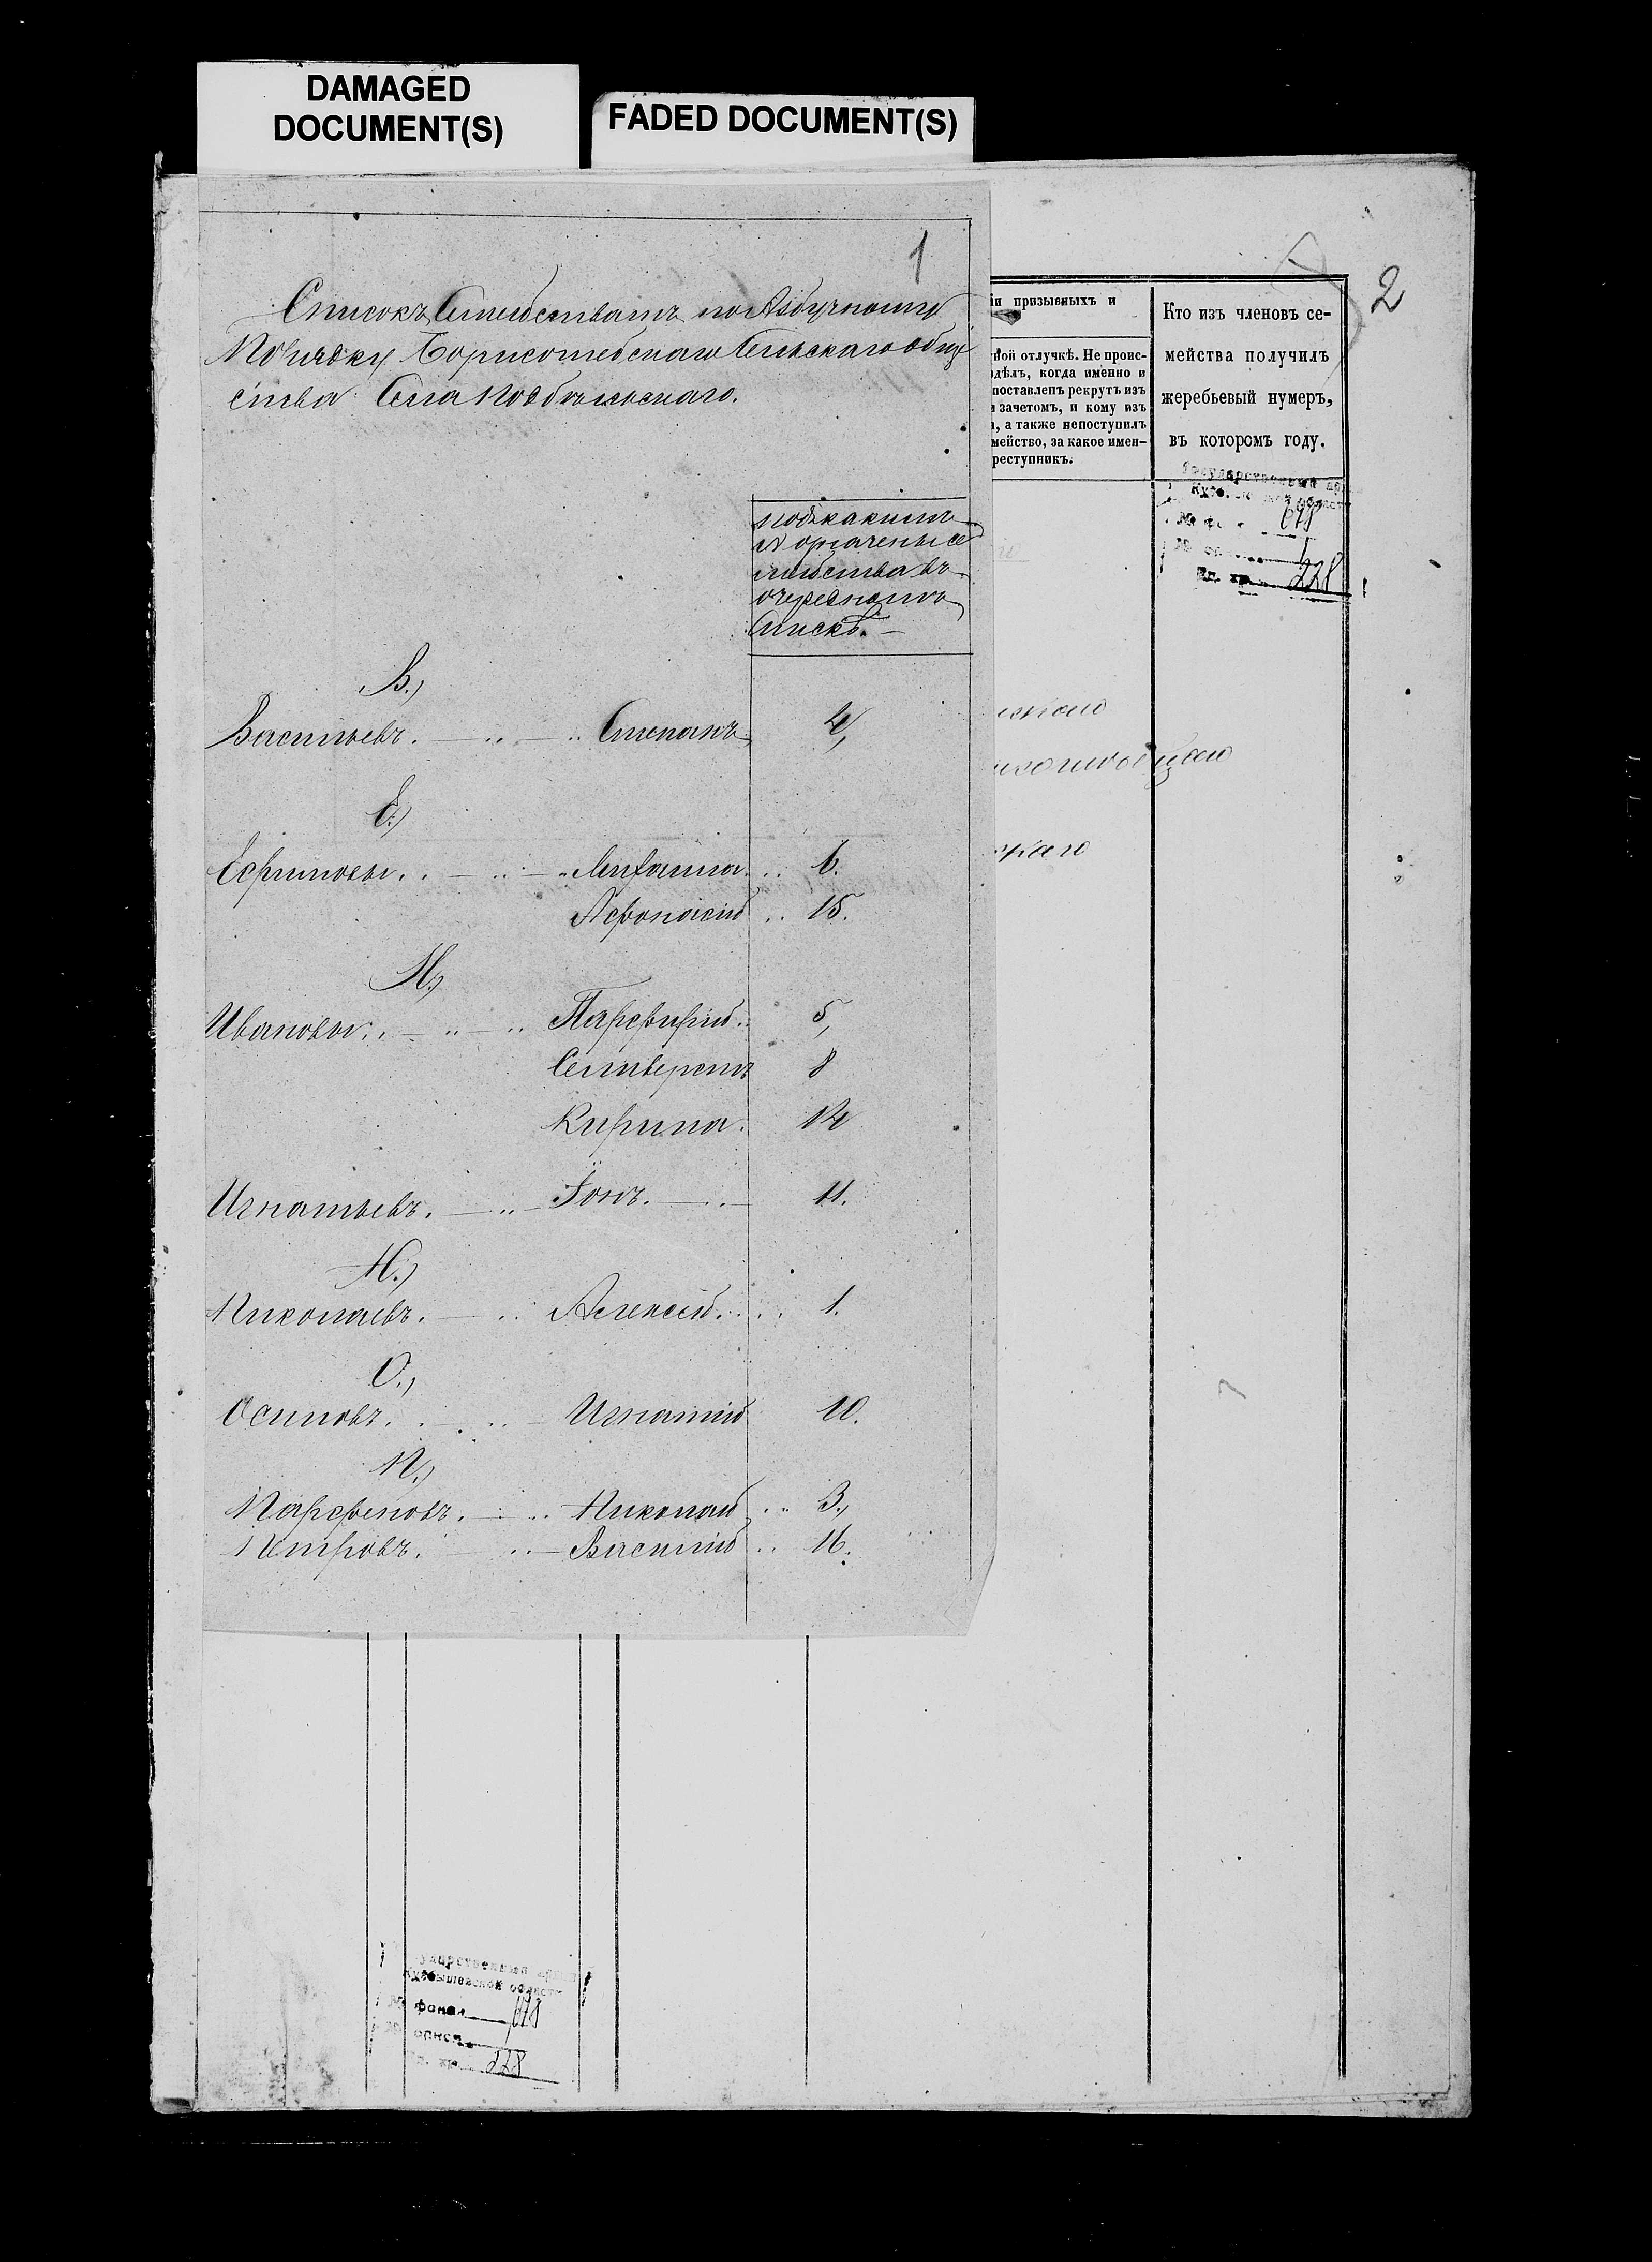 DAMAGED
DOCUMENT(S)
FADED DOCUMENT(S)
1
Списокъ Семействамъ по Азбучному
Порядку Борисоглебскаго Сельскаго обще
ства Села Подбельскаго.
подъ какимъ
№ означены се
мейства въ
очередномъ
спискѣ.
В.)
Васильевъ. Степанъ 4,
Е.)
Ефимовы. Митрофана 6.
Афонасий 15.
И.)
Ивановы. Парфирий 5,
Селиверстъ 8
Кирила 14
Игнатьевъ. Іонъ. 11.
Н.)
Николаевъ. Алексей 1.
О.)
Осиповъ. Игнатий 10.
П.)
Парфеновъ. Николай 3,
Петровъ. Василий 16.
2
 іи призывныхъ и
ной отлучкѣ. Не проис-
здѣлъ, когда именно и
поставленъ рекрутъ изъ
зачетомъ, и кому изъ
а, а также непоступилъ
мейство, за какое имен-
реступникъ.
Кто изъ членовъ се-
мейства получилъ
жеребьевый нумеръ,
въ которомъ году.
Государственный ар
Куйб области
№ ф. 678
№ оп. 1
Ед. хр. 228
скаго
Государственный архив
Куйбышевской области
№ фонда 678
№ описи 1
Ед. хр. 228